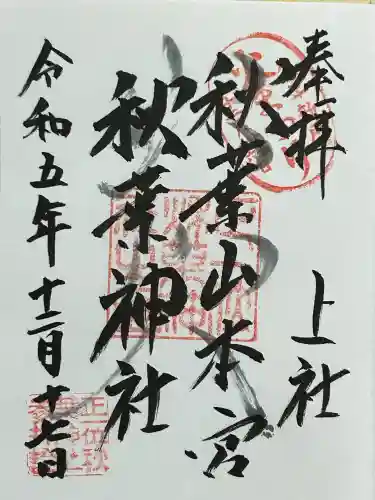 奉拝
上社
秋葉山本宮
秋葉神社
令和五年十二月十七日